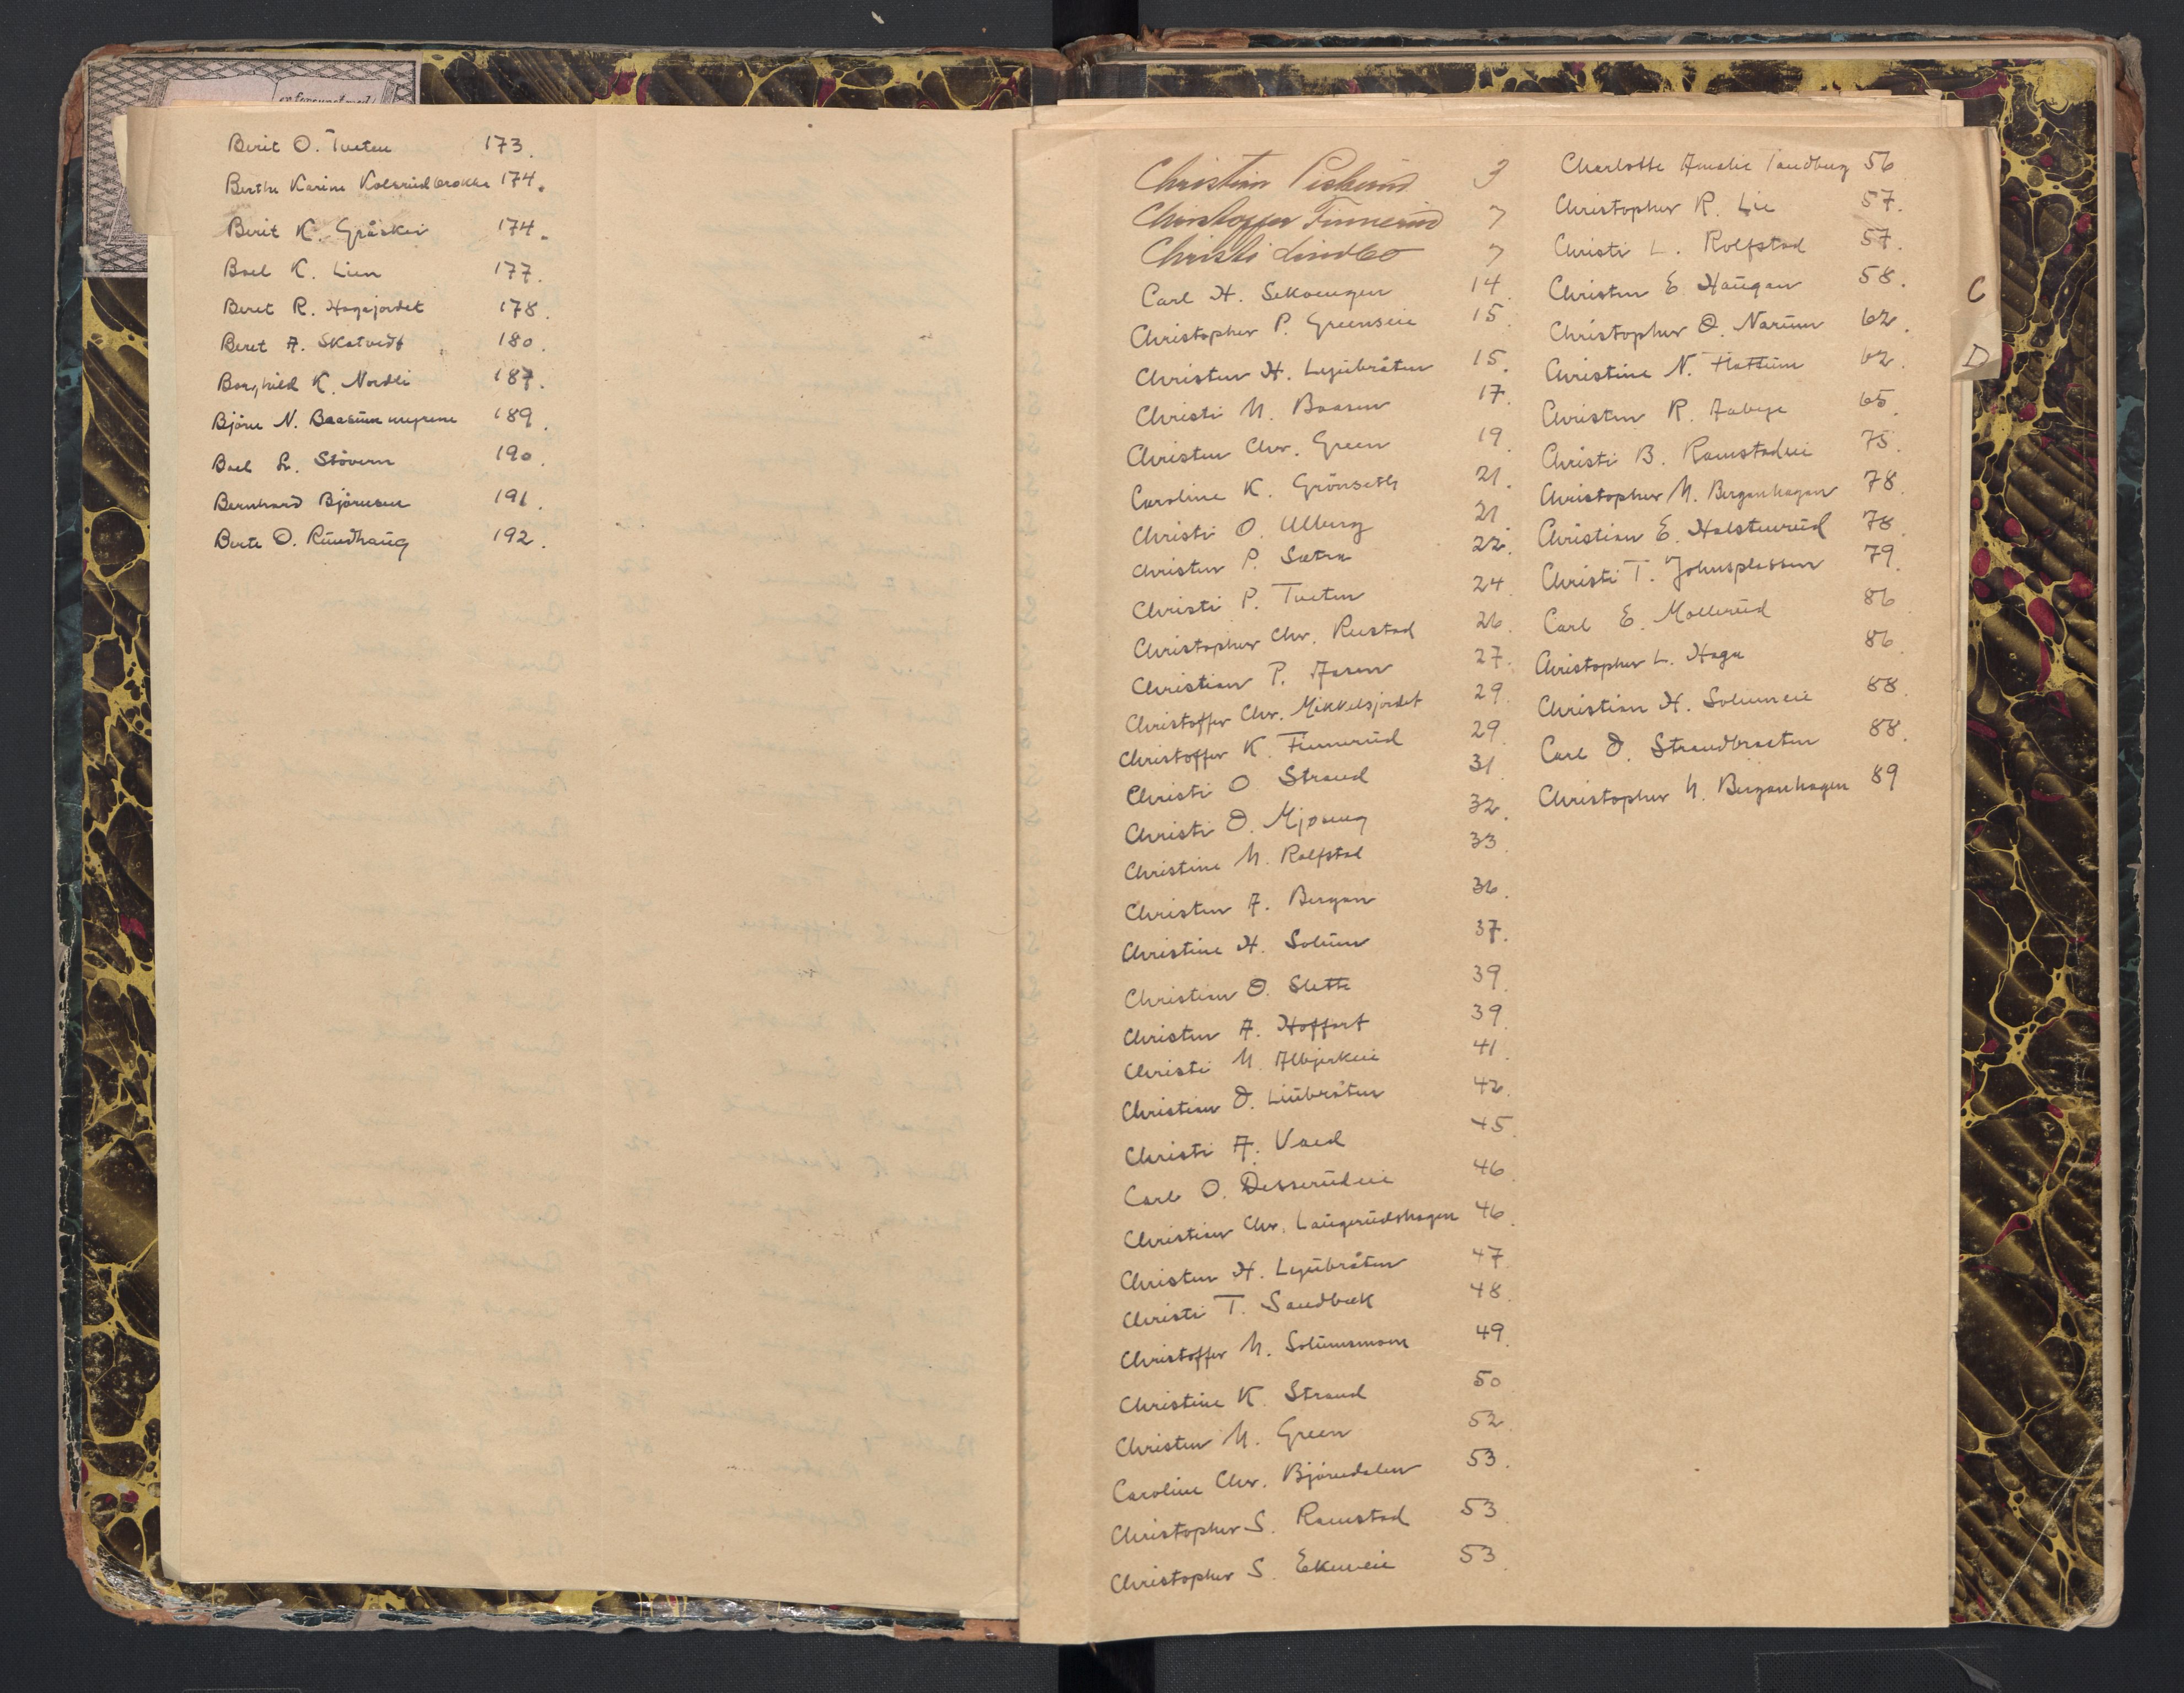 Berit O. Tveten 173.
Berthe Karine Kolsrudbrokke 174.
Berit K. Gråskei 174.
Boel K. Lien 177.
Beret R. Hagajordet 178.
Beret A. Skatvedt 180.
Borghild K. Nordli 187.
Björn N. Baasummyrene 189.
Boel L. Stövern 190.
Bernhard Björnsen 191.
Berte O. Rundhaug 192.
Christian 3
Christoffer Finnerud 7
Christi Lindbo 7
Carl H. 14.
Christopher P. Greenseie 15.
Christen H. Ljubråten 15.
Christi N. Baasen 17.
Christen Chr. Green 19.
Caroline K. Grönseth 21.
Christi O. Ulberg 21
Christen P. Sætra 22.
Christi P. Tveten 24
Christopher Chr. Rustad 26.
Christian P. Aasen 27.
Christoffer Chr. Mikkelsjordet 29.
Christoffer K. Finnerud 29.
Christi O Strand 31
Christi O. Mjøseng 32.
Christine N. Rolfstad 33.
Christen A. Bergan 36.
Christine H. Solum 37.
Christian O. Slette 39.
Christen A. Hoffart 39.
Christi N. Albjerkeie 41.
Christian O. Liubråten 42.
Christi A. Vaed 45.
Carl O. Desserudeie 46.
Christian Chr. Laugerudshagen 46.
Christen H. Ljubråten 47.
Christi T. Sandbæk 48.
Christoffer N. Solumsmoen 49.
Christine K. Strand 50
Christen N. Green 52.
Caroline Chr. Björnedalen 53.
Christopher S. Ramstad 53.
Christopher S. Ekerneie 53.
Charlotte Amalie Sandberg 56
Christopher R. Lie 57.
Christi L. Rolfstad 57.
Christen E. Haugan 58.
Christopher O. Narum 62.
Christine N. Hattum 62.
Christen R. Aabye 65.
Christi B. Ramstadeie 75.
Christopher N. Berganhagen 78.
Christian E. Halstenrud 78.
Christi T. Johnsplassen 79.
Carl E. Mollerud 86.
Christopher L. Haga 86.
Christian H. Solumeie 88.
Carl O. Strandbraaten 88.
Christopher N. Berganhagen 89
C
D